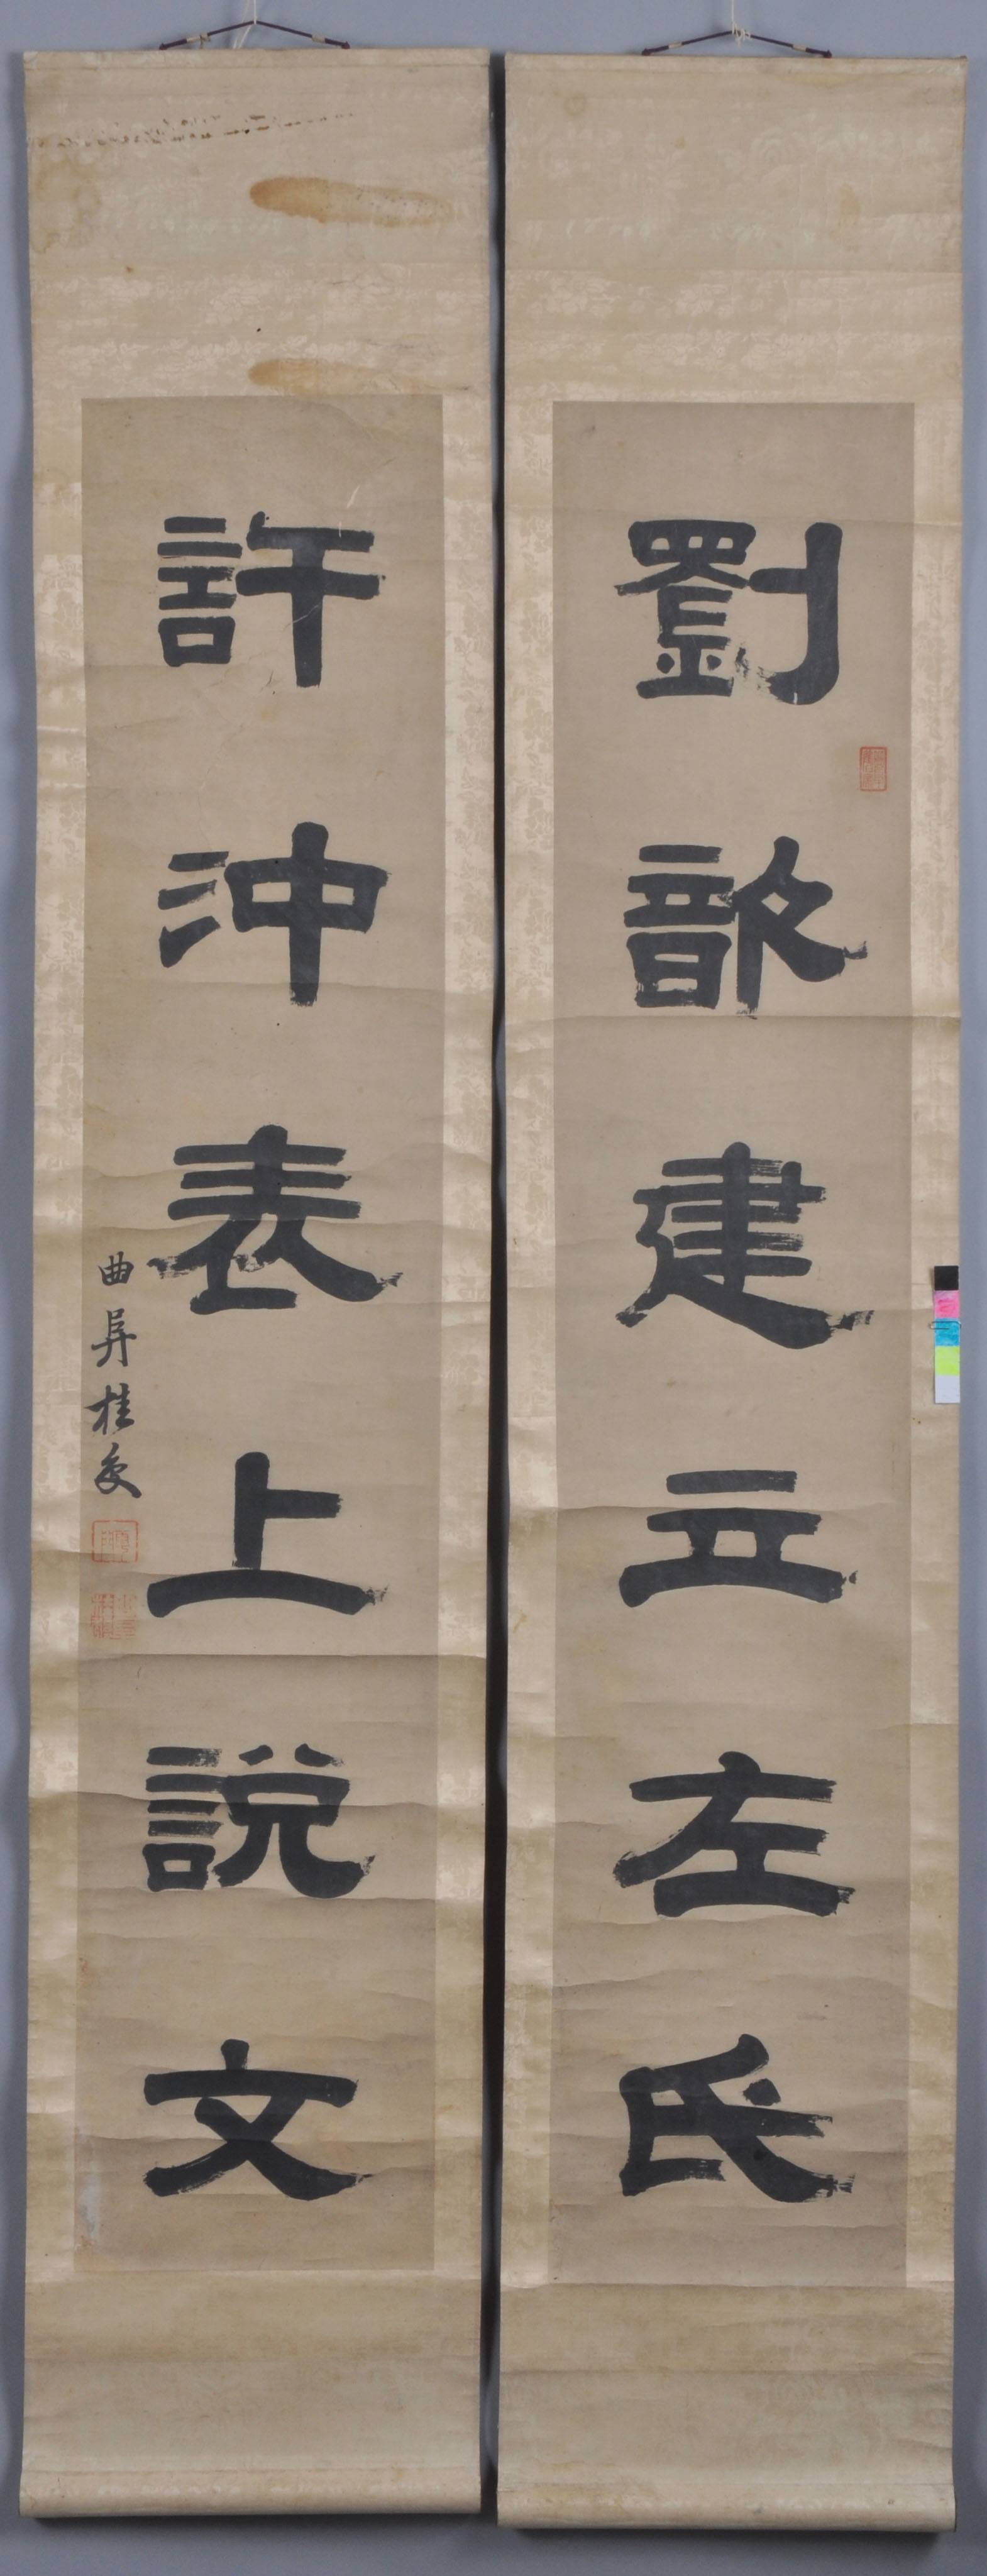 劉歆建立左氏
許沖表上說文
曲阜桂馥